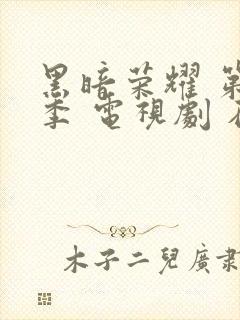 黑暗荣耀 第
季 電視劇
木子二兒廣